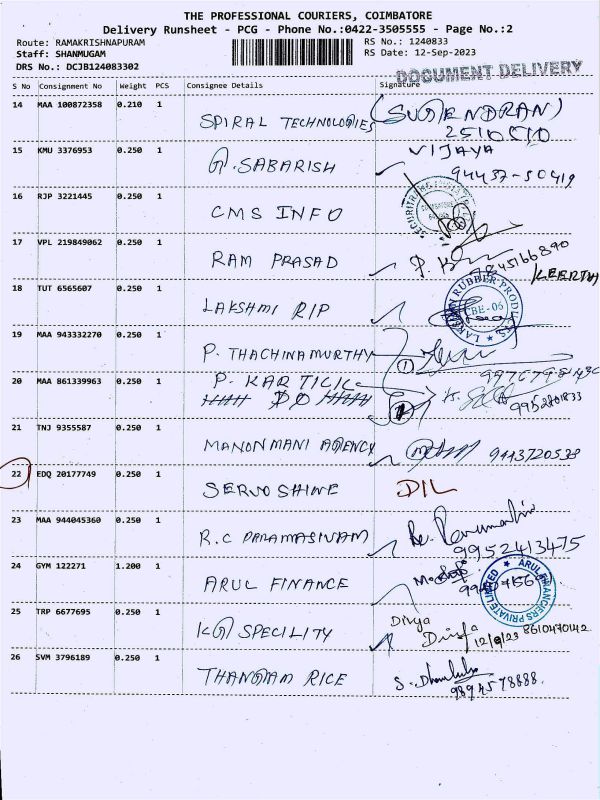 THE PROFESSIONAL COURIERS, COIMBATORE
Delivery Runsheet - PCG - Phone No.:0422-3505555 - Page No.:2
Route: RAMAKRISHNAPURAM RS No.: 1240833
Staff: SHANMUGAM RS Date: 12-Sep-2023
DRS No.: DCJB124083302
DOCUMENT DELIVERY
S No Consignment No Weight PCS Consignee Details Signature
14 MAA 100872358 0.210 1 SPIRAL TECHNOLOGIES (SUGENDRAN)
2510510
15 KMU 3376953 0.250 1 G.SABARISH VIJAYA
94437-50419
16 RJP 3221445 0.250 1 CMS INFO
17 VPL 219849062 0.250 1 RAM PRASAD 7845166890
KEERTH
18 TUT 6565607 0.250 1 LAKSHMI RIP
LAKSHMI RUBBER PRODUCTS
CBE-06
19 MAA 943332270 0.250 1 P. THACHINAMURTHY 1
20 MAA 861339963 0.250 1 P. KARTICK
9952801833
21 TNJ 9355587 0.250 1 MANONMANI AGENCY 9443720538
22 EDQ 20177749 0.250 1 SERVO SHINE DIL
23 MAA 944045360 0.250 1 R.C PARAMASIVAM
9952413475
24 GYM 122271 1.200 1 ARUL FINANCE
PRIVATE LIMITED
25 TRP 6677695 0.250 1 KG SPECILITY Divya
12/9/23 8610430142
26 SVM 3796189 0.250 1 THANGAM RICE
9894578888.